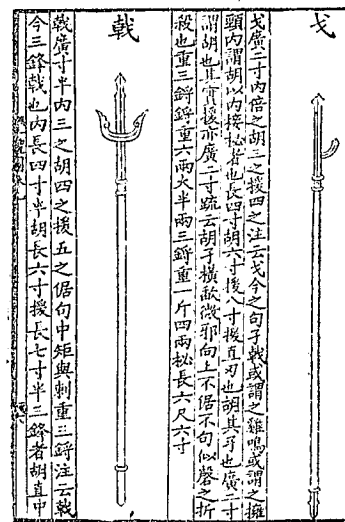 戈
戈廣二寸内倍之胡三之援四之注云戈今之句孑戟或謂之雞鳴或謂之擁
頸内謂胡以内接柲者也長四寸胡六寸援八寸援直刃也胡其孑也廣二寸
謂胡也其實援亦廣二寸疏云胡子橫㨖微邪向上不倨不句似磬之折
殺也重三鋝鋝重六兩大半兩三鋝重一斤四兩柲長六尺六寸
戟
戟廣寸半内三之胡四之援五之倨句中矩與刺重三鋝注云戟
今三鋒戟也内長四寸半胡長六寸援長七寸半三鋒者胡直中